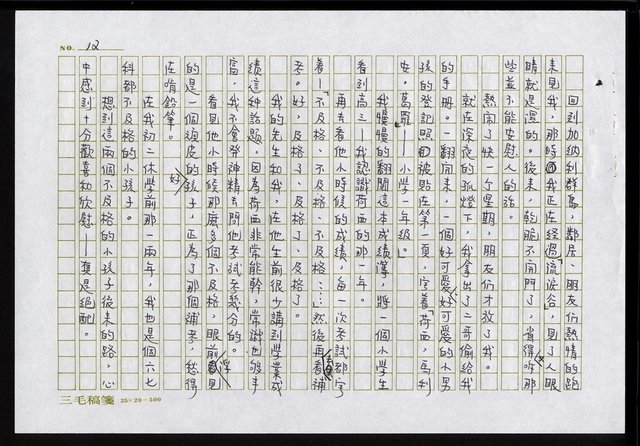 NO. 12
回到加納利群島,鄰居、朋友們熱情的跑
來見我,那時我正在經過「流淚谷」,見了人眼
睛就是濕的。後來,乾脆不開門了,省得聽那
些並不能安慰人的話。
熱鬧了快一個星期,朋友們才放了我。
就在深夜的孤燈下,我拿出了二哥偷給我
的手冊。一翻開來,一個好可愛好可愛的小男
孩的登記照被貼在第一頁,寫著「荷西・馬利
安・葛羅——小學一年級。」
我慢慢的翻閱這本成績簿,將一個小學生
看到高三——我認識荷西的那一年。
再去看他小時候的成績,每一次考試都寫
著——「不及格、不及格、不及格……」然後再看補
考。好,及格了、及格了、及格了。
我的先生和我,在他生前很少講到學業成
績這種話題,因為荷西非常能幹,常識也夠豐
富,我不會發神經去問他考試考幾分的。
看見他小時候那麼多個不及格,眼前浮見
的是一個頑皮的好孩子,正為了那個補考,愁得
在啃鉛筆。
在我初二休學前那一兩年,我也是個六七
科都不及格的小孩子。
想到這兩個不及格的小孩子後來的路,心
中感到十分歡喜和欣慰——真是絕配。
三毛稿箋 25×20=500